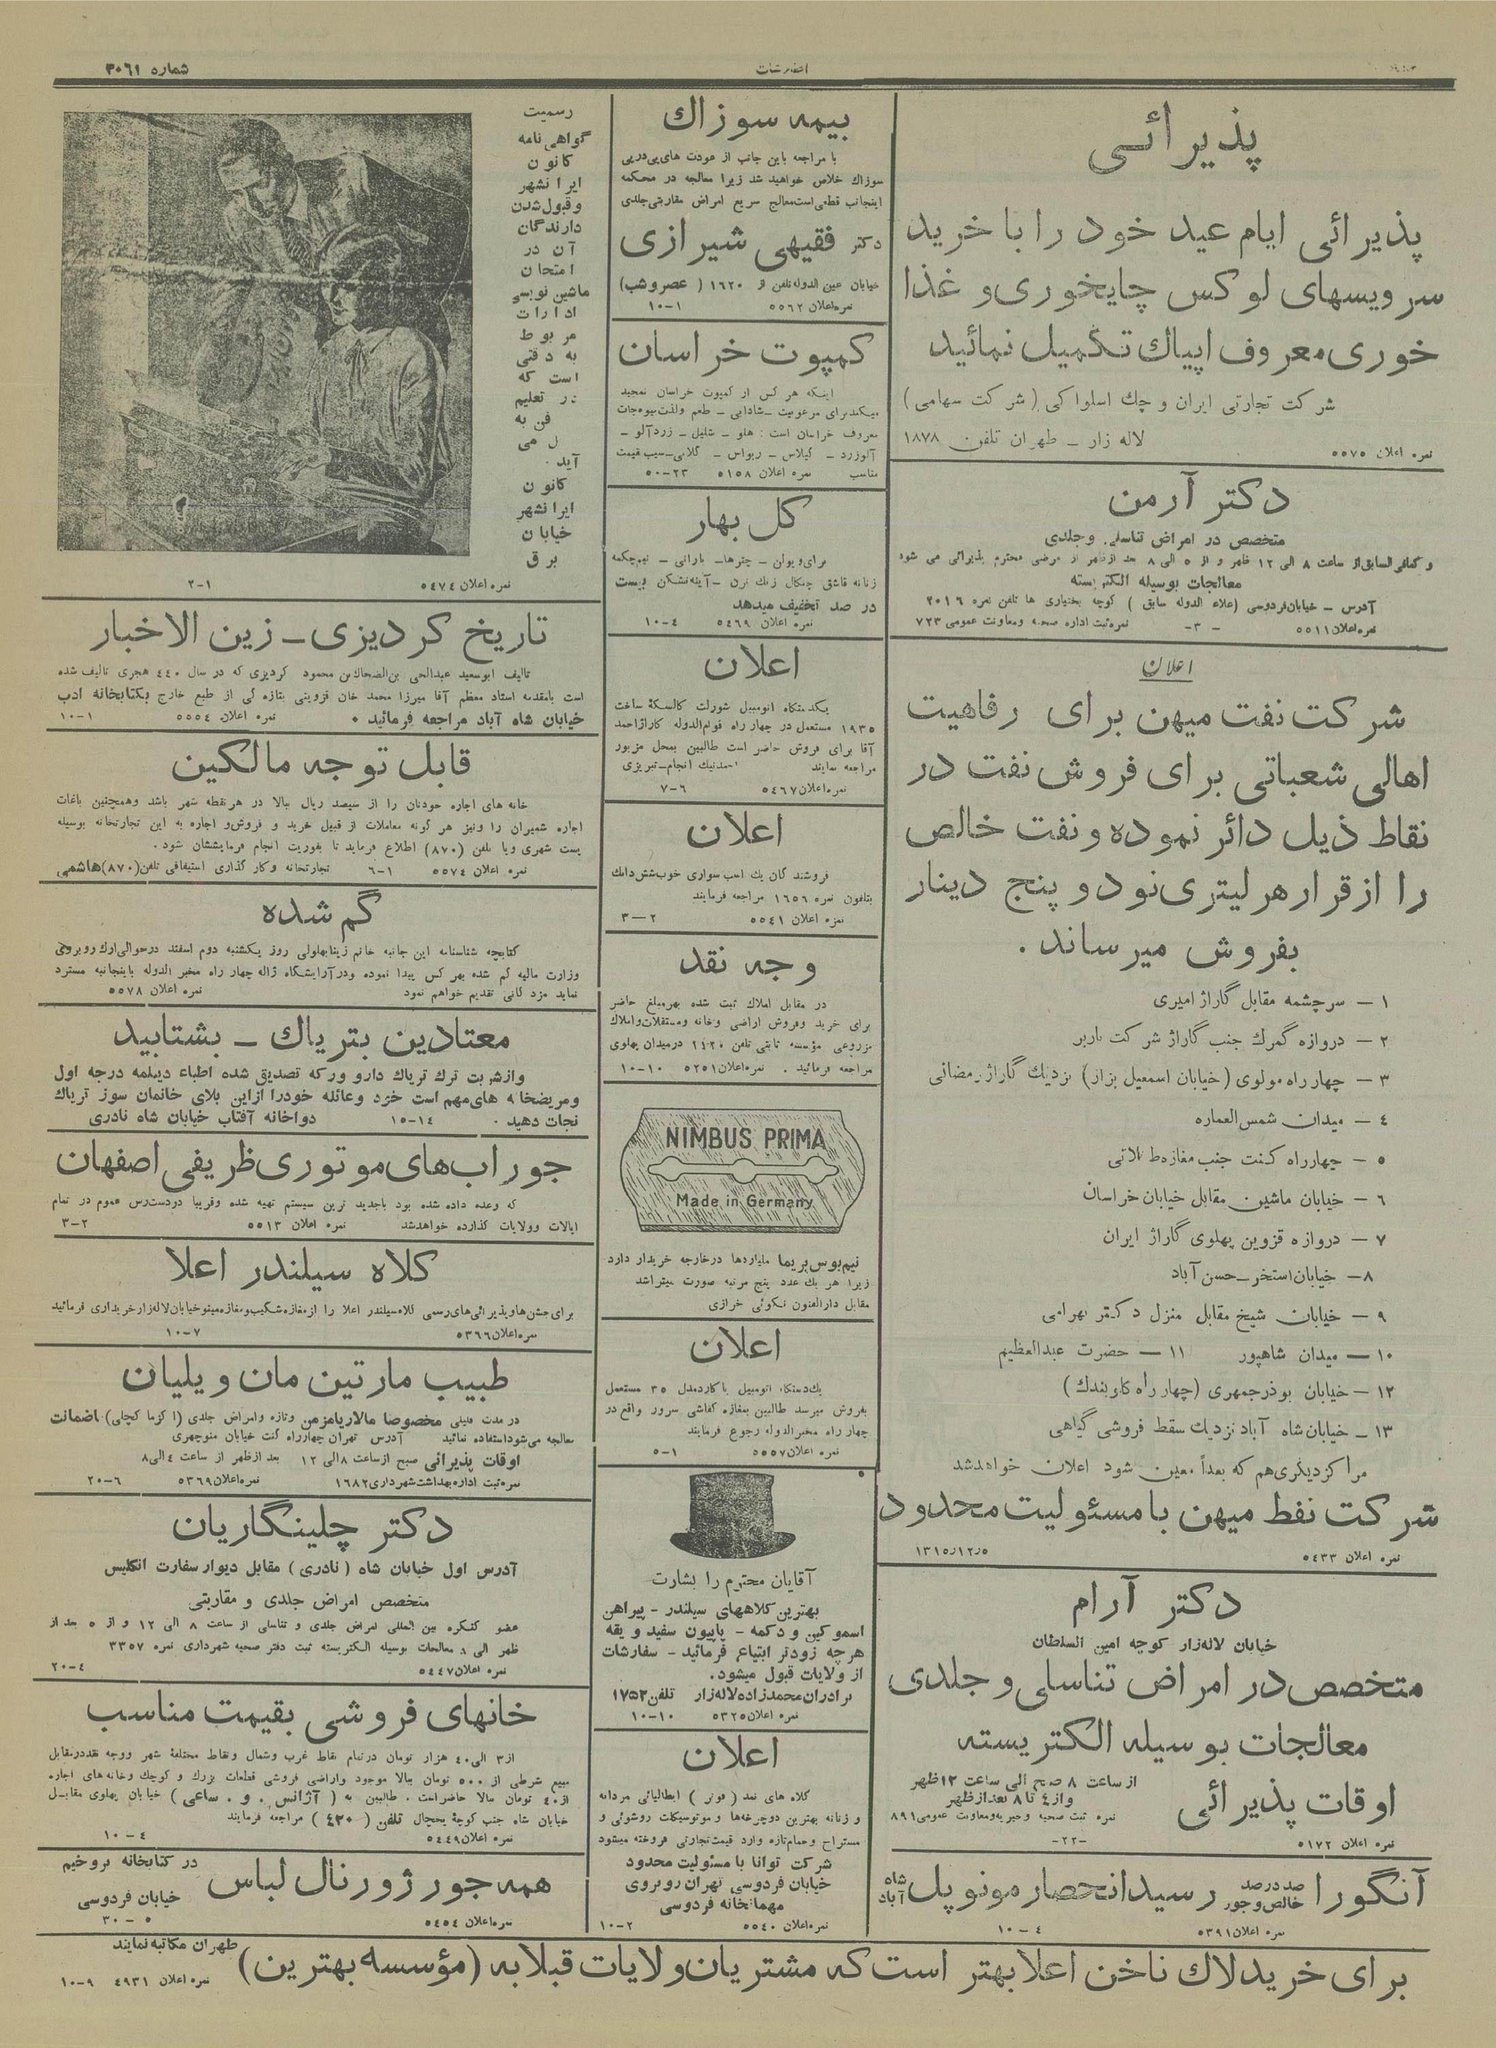 شماره ۳۰۶۱
پذیرائی
پذیرائی ایام عید خود را با خرید
سرویسهای لوکس چایخوری و غذا
خوری معروف اپیاك تکمیل نمائید
شرکت تجارتی ایران و چك اسلواکی (شرکت سهامی)
لاله زار ـ طهران تلفن ۱۸۷۸
نمره اعلان ۵۵۷۵
دکتر آرمن
متخصص در امراض تناسلی وجلدی
و کمافی السابق از ساعت ۸ الی ۱۲ ظهر و از ۵ الی ۸ بعد از ظهر از مرضی محترم پذیرائی می شود
معالجات بوسیله الکتریسته
آدرس ـ خیابان فردوسی (علاء الدوله سابق) کوچه بختیاری ها تلفن نمره ۲۰۱۶
نمره اعلان ۵۵۱۱ -۳- نمره ثبت اداره صحیه ومعاونت عمومی ۷۲۳
اعلان
شرکت نفت میهن برای رفاهیت
اهالی شعباتی برای فروش نفت در
نقاط ذیل دائر نموده و نفت خالص
را از قرار هر لیتری نود و پنج دینار
بفروش میرساند .
۱ ـ سرچشمه مقابل گاراژ امیری
۲ ـ دروازه گمرك جنب گاراژ شرکت باربر
۳ ـ چهارراه مولوی (خیابان اسمعیل بزاز) نزدیك گاراژ رمضانی
٤ ـ میدان شمس العماره
۵ ـ چهارراه کنت جنب مغازه
۶ ـ خیابان ماشین مقابل خیابان خراسان
۷ ـ دروازه قزوین پهلوی گاراژ ایران
۸ـ خیابان استخر ـ حسن آباد
۹ ـ خیابان شیخ مقابل منزل دکتر بهرامی
۱۰ ـ میدان شاهپور ۱۱ ـ حضرت عبدالعظیم
۱۲ ـ خیابان بوذرجمهری (چهارراه گلوبندك)
۱۳ ـ خیابان شاه آباد نزدیك سقط فروشی گیاهی
مراکز دیگری هم که بعداً معین شود اعلان خواهد شد
شرکت نفط میهن با مسئولیت محدود
نمره اعلان ۵۴۳۳ ۱۳۱۵/۱۲/۵
دکتر آرام
خیابان لاله زار کوچه امین السلطان
متخصص در امراض تناسلی و جلدی
معالجات بوسیله الکتریسته
اوقات پذیرائی
از ساعت ۸ صبح الی ساعت ۱۲ ظهر
و از ٤ تا ۸ بعد از ظهر
نمره ثبت صحیه و خیریه ومعاونت عمومی ۸۹۱
نمره اعلان ۵۱۷۲ -۲۲-
آنگورا صد درصد خالص وجور رسید انحصار مونوپل شاه آباد
نمره اعلان ۵۳۹۱ ٤-۱۰
بیمه سوزاك
با مراجعه باین جانب از عودت های پی درپی
سوزاك خلاص خواهید شد زیرا معالجه در محکمه
اینجانب قطعی است معالج سریع امراض مقاربتی جلدی
دکتر فقیهی شیرازی
خیابان عین الدوله تلفن از ۱۶۲۰ (عصر و شب)
نمره اعلان ۵۵۶۲ ۱-۱۰
کمپوت خراسان
اینکه هر کس از کمپوت خراسان تمجید
میکند برای مرغوبیت ـ شادابی ـ طعم ولذت میوه جات
معروف خراسان است : هلو ـ شلیل ـ زردآلو ـ
آلوزرد ـ گیلاس ـ ریواس ـ گلابی ـ سیب قیمت
مناسب نمره اعلان ۵۱۵۸ ۲۳-۵۰
گل بهار
برای ویولن ـ چترها ـ بارانی ـ نیم چکمه
زنانه قاشق چنگال زنك نزن ـ آینه نشکن بیست
در صد تخفیف میدهد
نمره اعلان ۵۴۶۹ ٤-۱۰
اعلان
یکدستگاه اتومبیل شورلت کالسکهٔ ساخت
۱۹۳۵ مستعمل در چهار راه قوام الدوله گاراژ احمد
آقا برای فروش حاضر است طالبین بمحل مزبور
مراجعه نمایند
نمره اعلان ۵۴۶۷ ۶-۷
اعلان
فروشندگان یك اسب سواری خوب شش دانك
بتلفون نمره ۱۶۵۶ مراجعه فرمایند
نمره اعلان ۵۵۴۱ ۲-۳
وجه نقد
در مقابل املاك ثبت شده بهر مبلغ حاضر
برای خرید وفروش اراضی وخانه ومستقلات واملاك
مزروعی مؤسسه ثابتی تلفن ۲٤۲۰ در میدان پهلوی
مراجعه فرمائید . نمره اعلان ۵۲۵۱ ۱۰-۱۰
NIMBUS PRIMA
Made in Germany
نیم بوس پریما ملیاردها در خارجه خریدار دارد
زیرا هر یك عدد پنج مرتبه صورت میتراشد
مقابل دارالفنون نکوئی خرازی
اعلان
یك دستگاه اتومبیل پاکارد مدل ۳۵ مستعمل
بفروش میرسد طالبین بمغازه کفاشی سرور واقع در
چهار راه مخبرالدوله رجوع فرمایند
نمره اعلان ۵۵۵۷ ۱-۵
آقایان محترم را بشارت
بهترین کلاههای سیلندر - پیراهن
اسموکین و دکمه - پاپیون سفید و یقه
هرچه زودتر ابتیاع فرمائید - سفارشات
از ولایات قبول میشود.
برادران محمدزاده لاله زار تلفن ۱۷۵۲
نمره اعلان ۵۳۲۵ ۱۰-۱۰
اعلان
کلاه های نمد (فوتر) ایطالیائی مردانه
و زنانه بهترین دوچرخه ها و موتوسیکلت روشوئی و
مستراح وحمام تازه وارد قیمت تجارتی فروخته میشود
شرکت توانا با مسئولیت محدود
خیابان فردوسی تهران روبروی
مهمانخانه فردوسی
نمره اعلان ۵۵۴۰ ۲-۱۰
رسمیت
گواهی نامه
کانون
ایرانشهر
وقبول شدن
دارندگان
آن در
امتحان
ماشین نویسی
ادارات
مربوط
به دقتی
است که
در تعلیم
فن به
آید.
کانون
ایرانشهر
خیابان
برق
نمره اعلان ۵۴۷۴ ۱-۲
تاریخ گردیزی ـ زین الاخبار
تالیف ابوسعید عبدالحی بن الضحاك بن محمود گردیزی که در سال ٤٤۰ هجری تالیف شده
است بامقدمه استاد معظم آقا میرزا محمد خان قزوینی بتازه گی از طبع خارج بکتابخانه ادب
خیابان شاه آباد مراجعه فرمائید . نمره اعلان ۵۵۵٤ ۱-۱۰
قابل توجه مالکین
خانه های اجاره خودتان را از سیصد ریال ببالا در هر نقطه شهر باشد وهمچنین باغات
اجاره شمیران را ونیز هر گونه معاملات از قبیل خرید و فروش و اجاره به این تجارتخانه بوسیله
پست شهری ویا تلفن (۸۷۰) اطلاع فرماید تا بفوریت انجام فرمایششان شود .
نمره اعلان ۵۵۷٤ ۱-۶ تجارتخانه وکار گذاری استیفافی تلفن (۸۷۰) هاشمی
گم شده
کتابچه شناسنامه این جانبه خانم زیبا بهلولی روز یکشنبه دوم اسفند در حوالی ارك روبروی
وزارت مالیه گم شده بهر کس پیدا نموده ودر آرایشگاه ژاله چهار راه مخبر الدوله باینجانبه مسترد
نماید مزدگانی تقدیم خواهم نمود نمره اعلان ۵۵۷۸
معتادین بتریاك ـ بشتابید
و از شربت ترك تریاك دارو ور که تصدیق شده اطباء دیپلمه درجه اول
ومریضخانه های مهم است خرد و عائله خود را از این بلای خانمان سوز تریاك
نجات دهید . ۱٤-۱۵ دواخانه آفتاب خیابان شاه نادری
جوراب های موتوری ظریفی اصفهان
که وعده داده شده بود باجدید ترین سیستم تهیه شده وقریبا در دسترس عموم در تمام
ایالات وولایات گذارده خواهد شد نمره اعلان ۵۵۱۳ ۲-۳
کلاه سیلندر اعلا
برای جشن ها و پذیرائی های رسمی کلاه سیلندر اعلا را از مغازه شکیب و مغازه مینو خیابان لاله زار خریداری فرمائید
نمره اعلان ۵۳۶۶ ۷-۱۰
طبیب مارتین مانویلیان
در مدت قلیلی مخصوصا مالاریا مزمن وتازه وامراض جلدی (اکزما کچلی) باضمانت
معالجه می شود استفاده نمائید آدرس تهران چهارراه کنت خیابان منوچهری
اوقات پذیرائی صبح از ساعت ۸ الی ۱۲ بعد از ظهر از ساعت ٤ الی ۸
نمره ثبت اداره بهداشت شهرداری ۱۶۸۲ نمره اعلان ۵۳۶۹ ۶-۲۰
دکتر چلینگاریان
آدرس اول خیابان شاه (نادری) مقابل دیوار سفارت انگلیس
متخصص امراض جلدی و مقاربتی
عضو کنگره بین المللی امراض جلدی و تناسلی از ساعت ۸ الی ۱۲ و از ۵ بعد از
ظهر الی ۸ معالجات بوسیله الکتریسته ثبت دفتر صحیه شهرداری نمره ۳۳۵۷
نمره اعلان ۵٤٤۷ ٤-۲۰
خانهای فروشی بقیمت مناسب
از ۳ الی ٤۰ هزار تومان در تمام نقاط غرب وشمال ونقاط مختلفهٔ شهر ووجه نقد در مقابل
مبیع شرطی از ۵۰۰ تومان ببالا موجود واراضی فروشی قطعات بزرك و کوچك وخانه های اجاره
از ٤۰ تومان ببالا حاضر است . طالبین به (آژانس . و . ساعی) خیابان پهلوی مقابل
خیابان شاه جنب کوچهٔ یخچال تلفن (٤۲۰) مراجعه فرمایند
نمره اعلان ۵٤٤۹ ٤-۱۰
همه جور ژورنال لباس
در کتابخانه بروخیم
خیابان فردوسی
نمره اعلان ۵٤۵٤ ۵-۳۰
برای خرید لاك ناخن اعلا بهتر است که مشتریان ولایات قبلا به (مؤسسه بهترین)
طهران مکاتبه نمایند
نمره اعلان ٤۹۳۱ ۹-۱۰